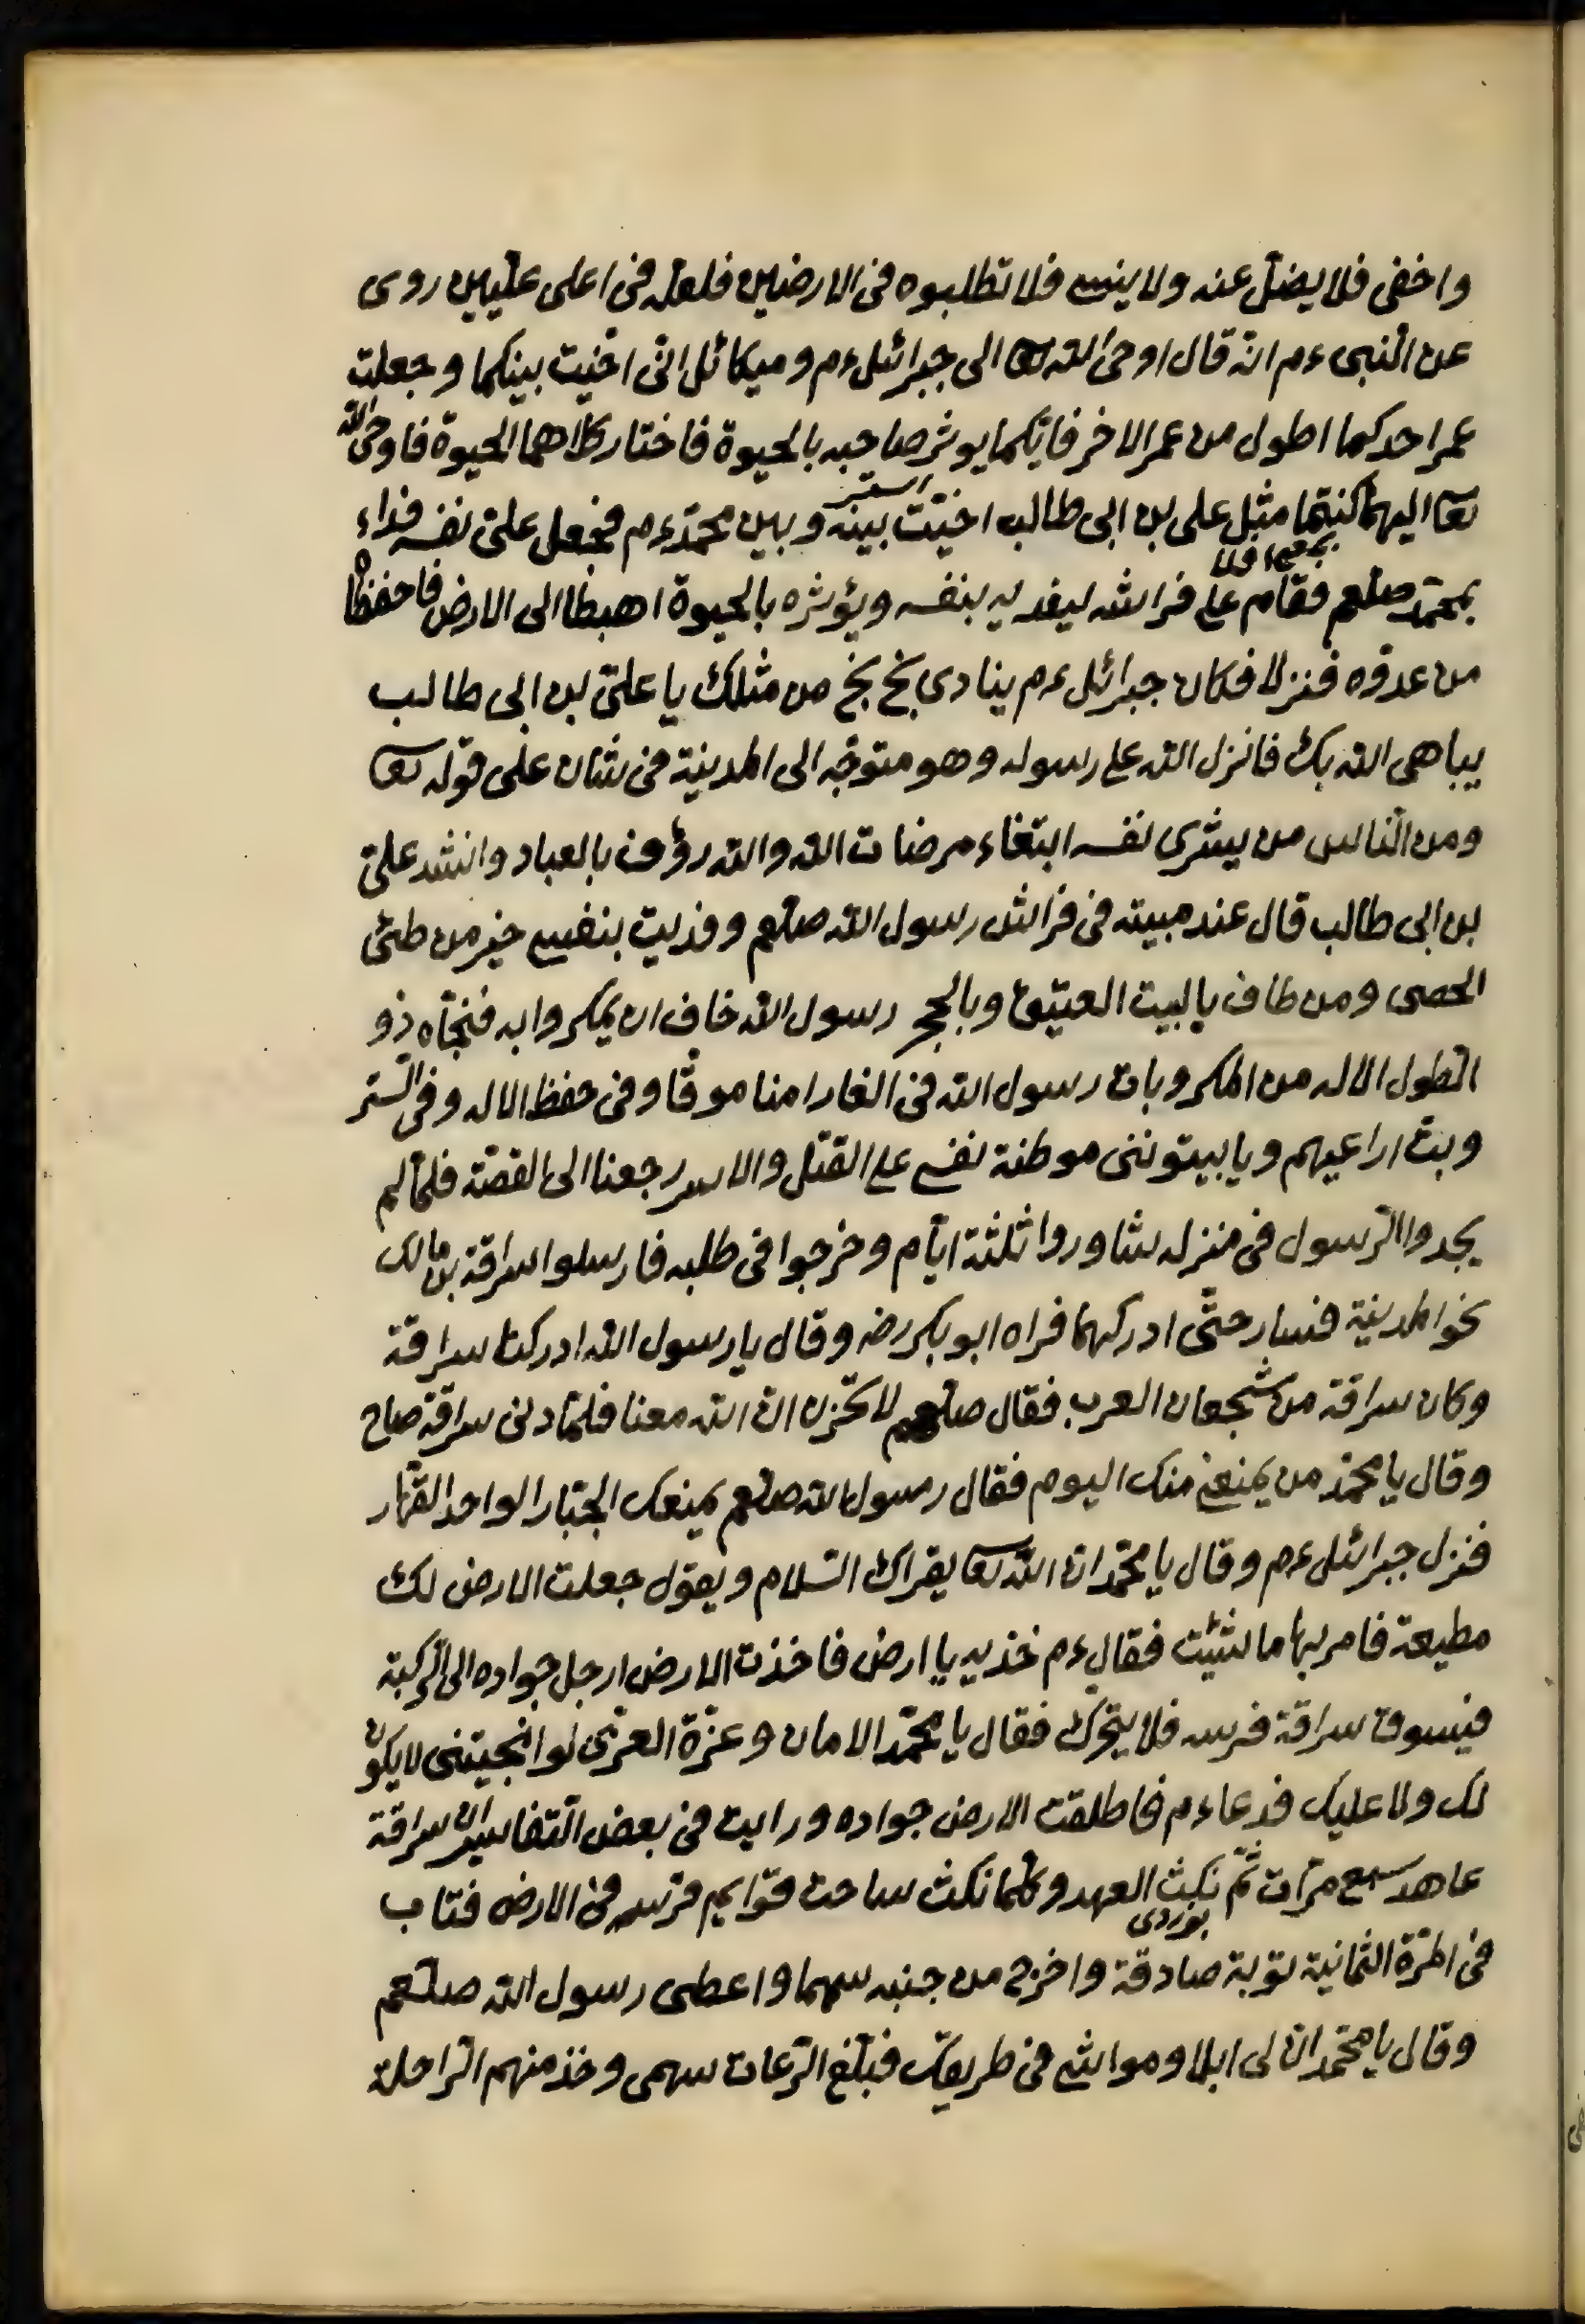 واخفى فلا يضل عنه ولا ينسى فلا تطلبوه فى الارضين فلعله فى اعلى عليين روى
عن النبى ءم انه قال اوحى الله تعا الى جبرائيل ءم وميكائل انى اخيت بينكما وجعلت
عمر احدكما اطول من عمر الاخر فايكما يوثر صاحبه بالحيوة فاختار كلاهما الحيوة فاوحى الله
تعا اليهما كنتما مثل على بن ابى طالب اخيت بينه وبين محمد ءم فجعل على نفسه فداء
بمحمد صلعم فقام على فراشه ليفديه بنفسه ويؤثره بالحيوة اهبطا الى الارض فاحفظاه
من عدوه فنزلا فكان جبرائل ءم ينادى بخ بخ من مثلك يا على بن ابى طالب
يباهى الله بك فانزل الله على رسوله وهو متوجه الى المدينة فى شان على قوله تعا
ومن الناس من يشرى نفسه ابتغاء مرضات الله والله رؤف بالعباد وانشد على
بن ابى طالب قال عند مبيته فى فراش رسول الله صلعم وفديت بنفسى خير من طئ
الحصى ومن طاف بالبيت العتيق وبالحجر رسول الله خاف ان يمكروا به فنجاه ذو
الطول الاله من المكر وبات رسول الله فى الغار امنا موقا وفى حفظ الاله وفى الستر
وبت اراعيهم ويا بيتوننى موطنة نفسى على القتل والاسر رجعنا الى القصة فلما لم
يجدوا الرسول فى منزله شاوروا ثلثة ايام وخرجوا فى طلبه فارسلوا سراقة بن مالك
نحو المدينة فسار حتى ادركهما فراه ابو بكر رضه وقال يا رسول الله ادركنا سراقة
وكان سراقة من شجعان العرب فقال صلعم لا تحزن ان الله معنا فلما دنى سراقة صاح
وقال يا محمد من يمنعنى منك اليوم فقال رسول الله صلعم يمنعك الجبار الواحد القهار
فنزل جبرائل ءم وقال يا محمد ان الله تعا يقراك السلام ويقول جعلت الارض لك
مطيعة فامر بها ما شئت فقال ءم خذيه يا ارض فاخذت الارض ارجل جواده الى الركبة
فيسوق سراقة فرسه فلا يتحرك فقال يا محمد الامان وعزة العزى لو انجيتنى لا يكون
لك ولا عليك فدعا ءم فاطلقت الارض جواده ورايت فى بعض التفاسير ان سراقة
عاهد سبع مرات ثم نكث العهد وكلما نكث ساحت قوايم فرسه فى الارض فتاب
فى المرة الثمانية توبة صادقة واخرج من جنبه سهما واعطى رسول الله صلعم
وقال يا محمد ان لى ابلا ومواشى فى طريقك فبلغ الرعات سهمى وخذ منهم الراحلة